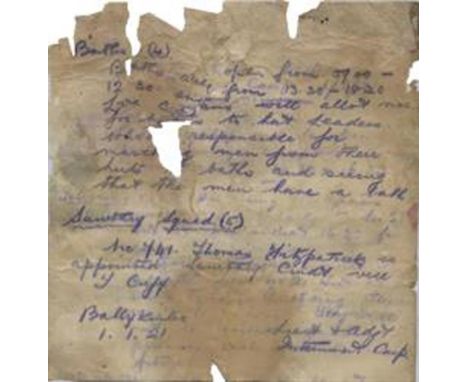 Baths (4)
Baths are open from 0900 –
12.30 and from 13.30 – 18.30
Line Captains will allot nos
for baths to hut leaders
who responsible for
marching men from their
huts to baths and seeing
that the men have a bath
Sanitary Squad (5)
No 741. Thomas Fitzpatrick is
appointed Sanitary
Ballykinlar
1.1.21
& Adjt
Internment Camp